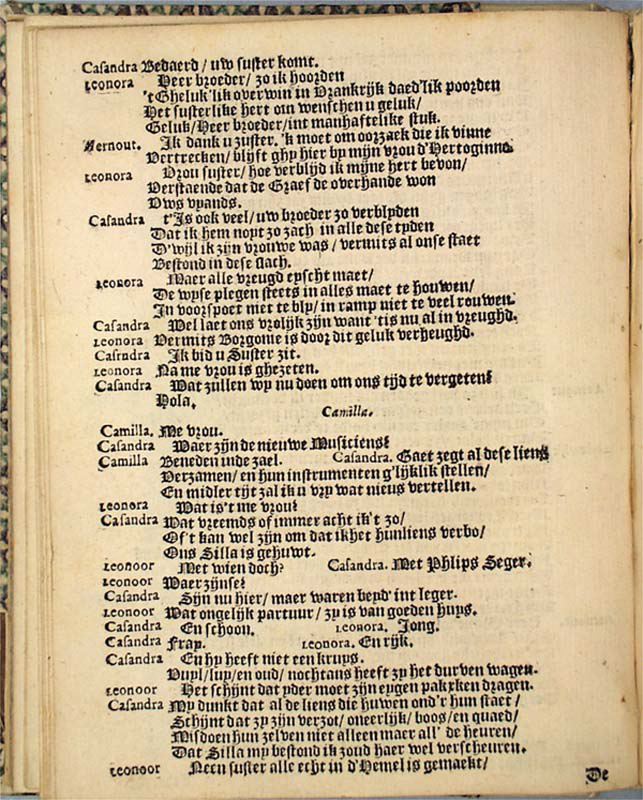 Casandra Bedaerd / uw suster komt.
Leonora Heer broeder / zo ik hoorden
't Gheluk'lik overwin in Vrankrijk daed'lik poorden
Het susterlike hert om wenschen u geluk /
Geluk / Heer broeder / int manhaftelike stuk.
Aernout. Ik dank u zuster. 'k moet om oorzaek die ik vinne
Vertrecken / blyft ghy hier by mijn vrou d'Hertoginne.
Leonora Vrou suster / hoe verblijd ik mijne hert bevon /
Verstaende dat de Graef de overhande won
Uws vyands.
Casandra t'Is ook veel / uw broeder zo verblyden
Dat ik hem noyt zo zach in alle dese tyden
D'wijl ik zijn vrouwe was / vermits al onse staet
Bestond in dese slach.
Leonora Maer alle vreugd eyscht maet /
De wyse plegen steets in alles maet te houwen /
In voorspoet niet te bly / in ramp niet te veel rouwen.
Casandra Wel laet ons vrolijk zijn want 'tis nu al in vreughd.
Leonora Vermits Borgonie is door dit geluk verheughd.
Casrndra Ik bid u Suster zit.
Leonora Na me vrou is ghezeten.
Casandra Wat zullen wy nu doen om ons tijd te vergeten?
Hola.
Camilla.
Camilla. Me vrou.
Casandra Waer zijn de nieuwe Musiciens?
Camilla Beneden inde zael. Casandra. Gaet zegt al dese liens
Verzamen / en hun instrumenten g'lijklik stellen /
En midler tijt zal ik u vry wat nieus vertellen.
Leonora Wat is't me vrou?
Casandra Wat vreemds of immer acht ik't zo /
Of't kan wel zijn om dat ikhet hunliens verbo /
Ons Silla is gehuwt.
Leonoor Met wien doch? Casandra. Met Phlips Seger.
Leonoor Waer zijnse?
Casandra Sijn nu hier / maer waren beyd' int leger.
Leonoor Wat ongelijk partuur / zy is van goeden huys.
Casandra En schoon. Leonora. Jong.
Casandra Fray. Leonora. En rijk.
Casandra En hy heeft niet een kruys.
Vuyl / luy / en oud / nochtans heeft zy het durven wagen.
Leonoor Het schijnt dat yder moet zijn eygen pakxken dragen.
Casandra My dunkt dat al de liens die huwen ond'r hun staet /
Schijnt dat zy zijn verzot / oneerlijk / boos / en quaed /
Misdoen hun zelven niet alleen maer all' de heuren /
Dat Silla my bestond ik zoud haer wel verscheuren.
Leonoor Neen suster alle echt in d'Hemel is gemaekt /
De